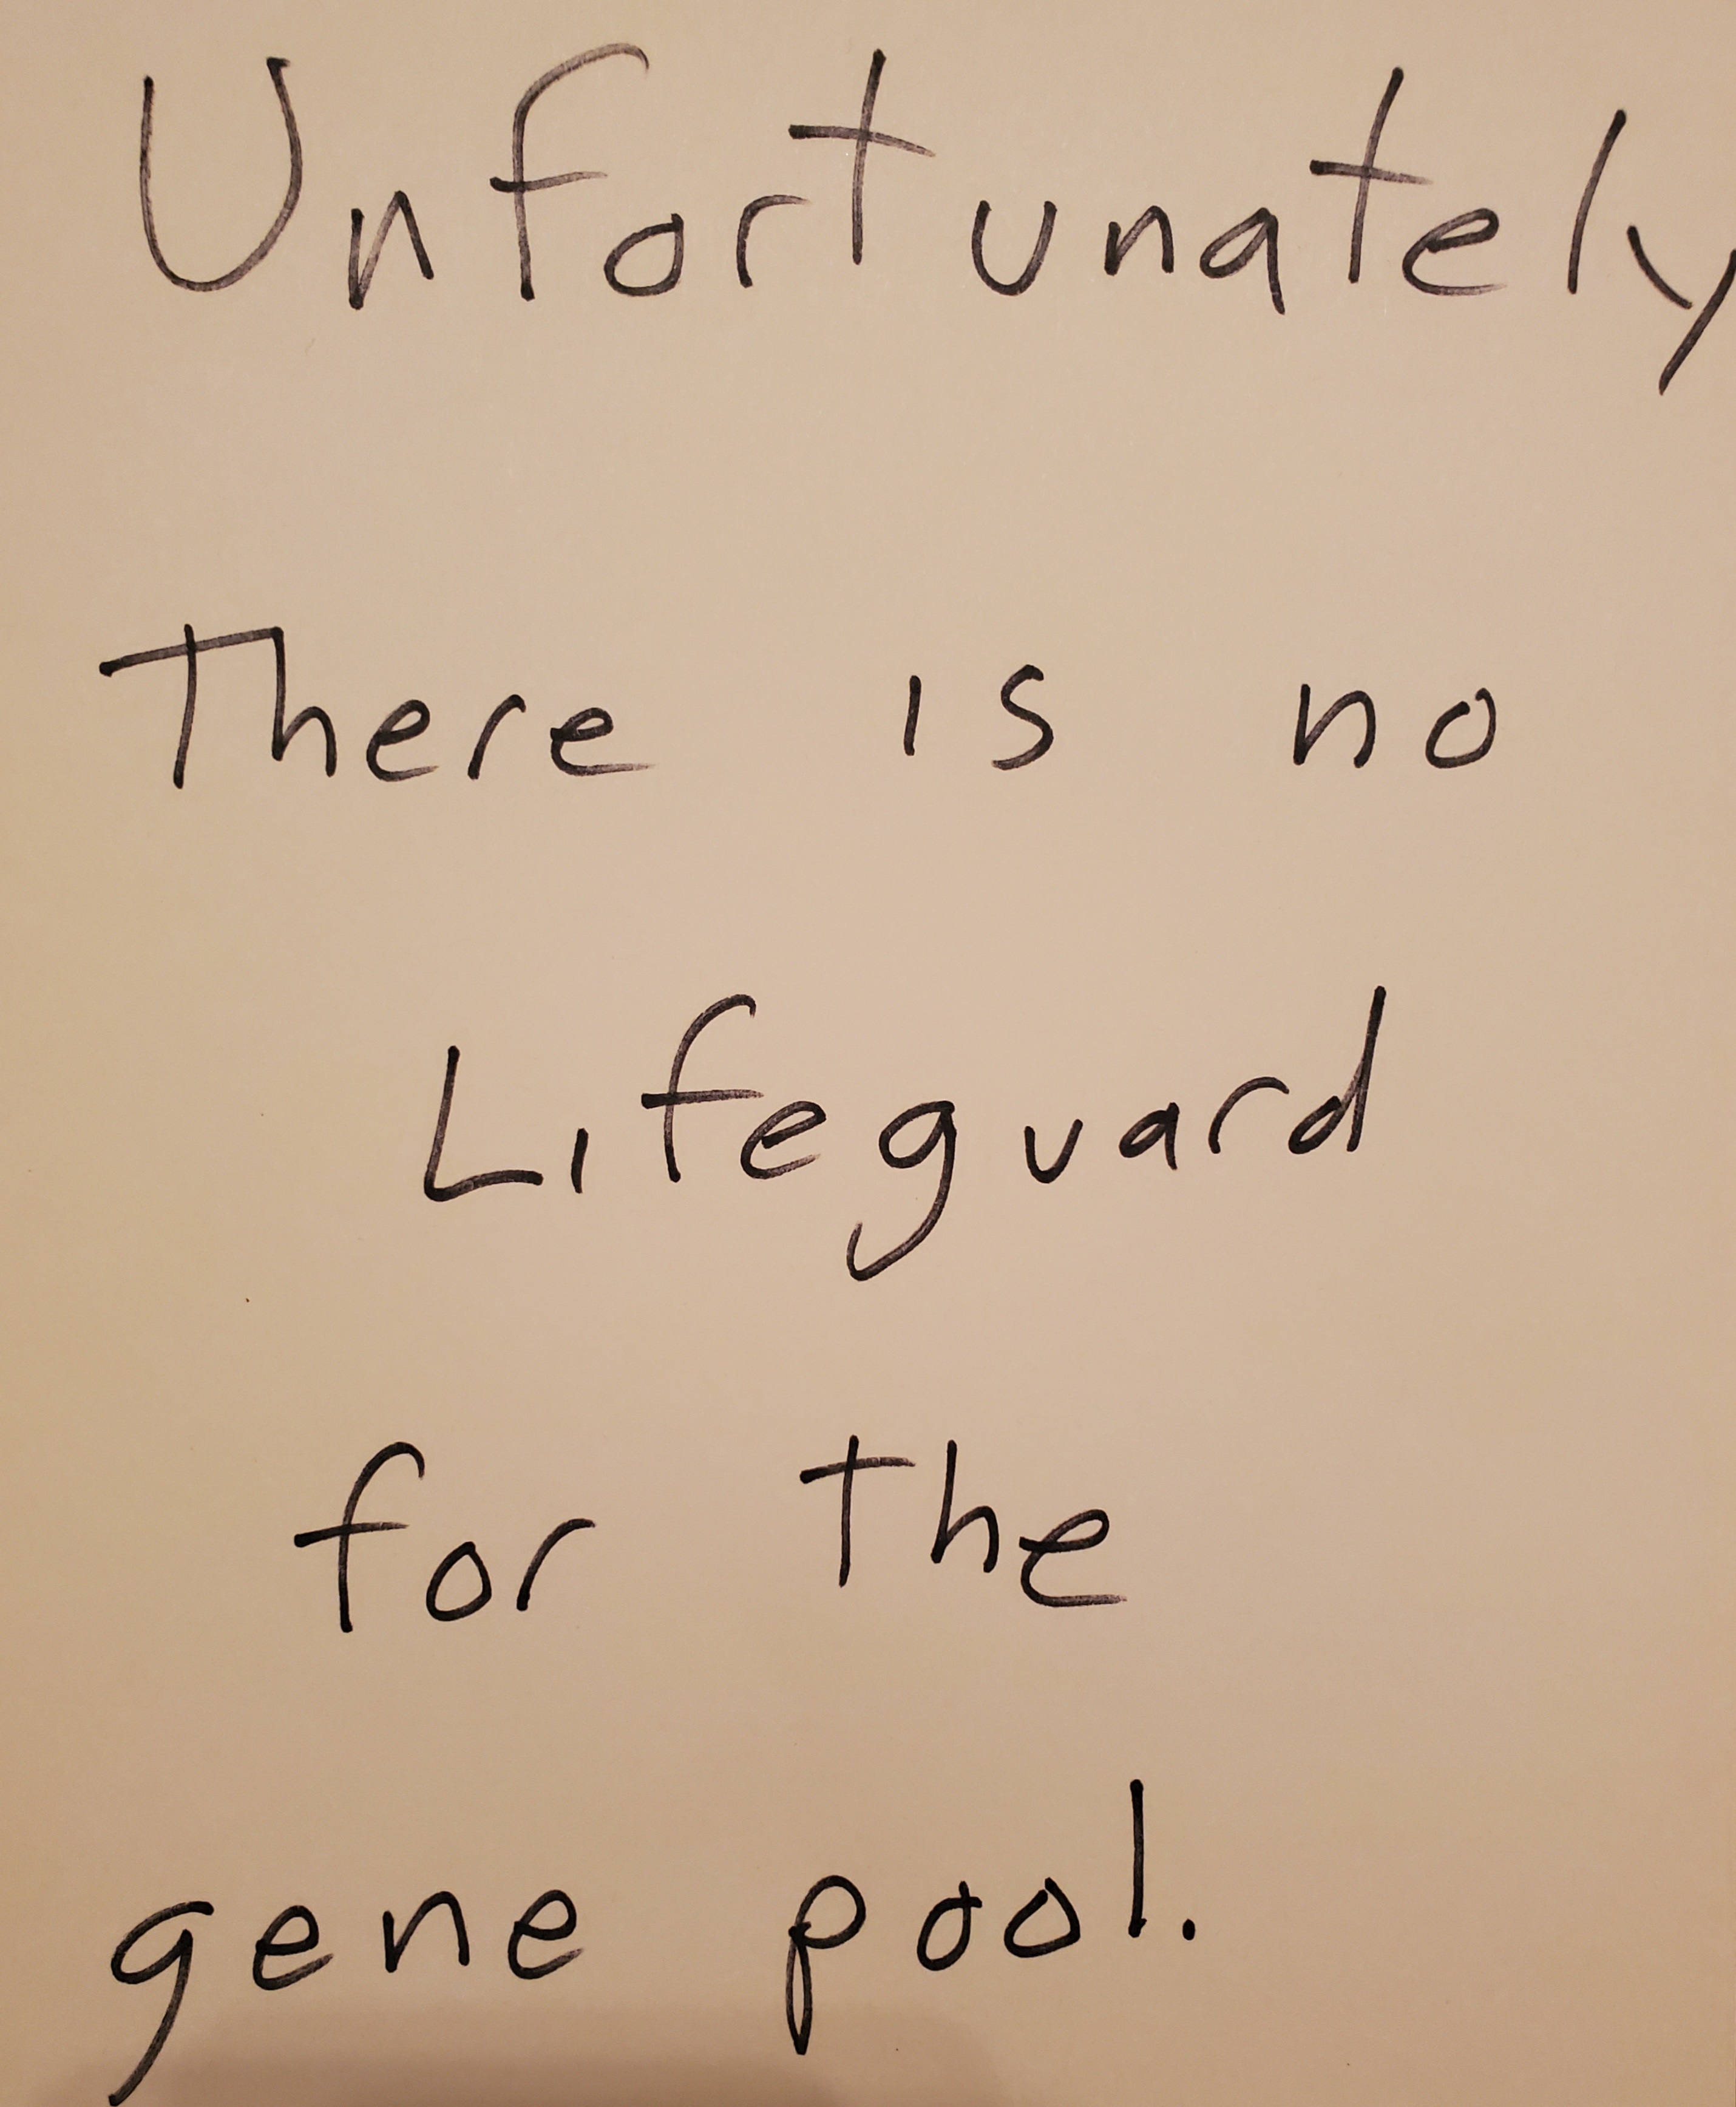 Unfortunately
There is no
Lifeguard
for the
gene pool.